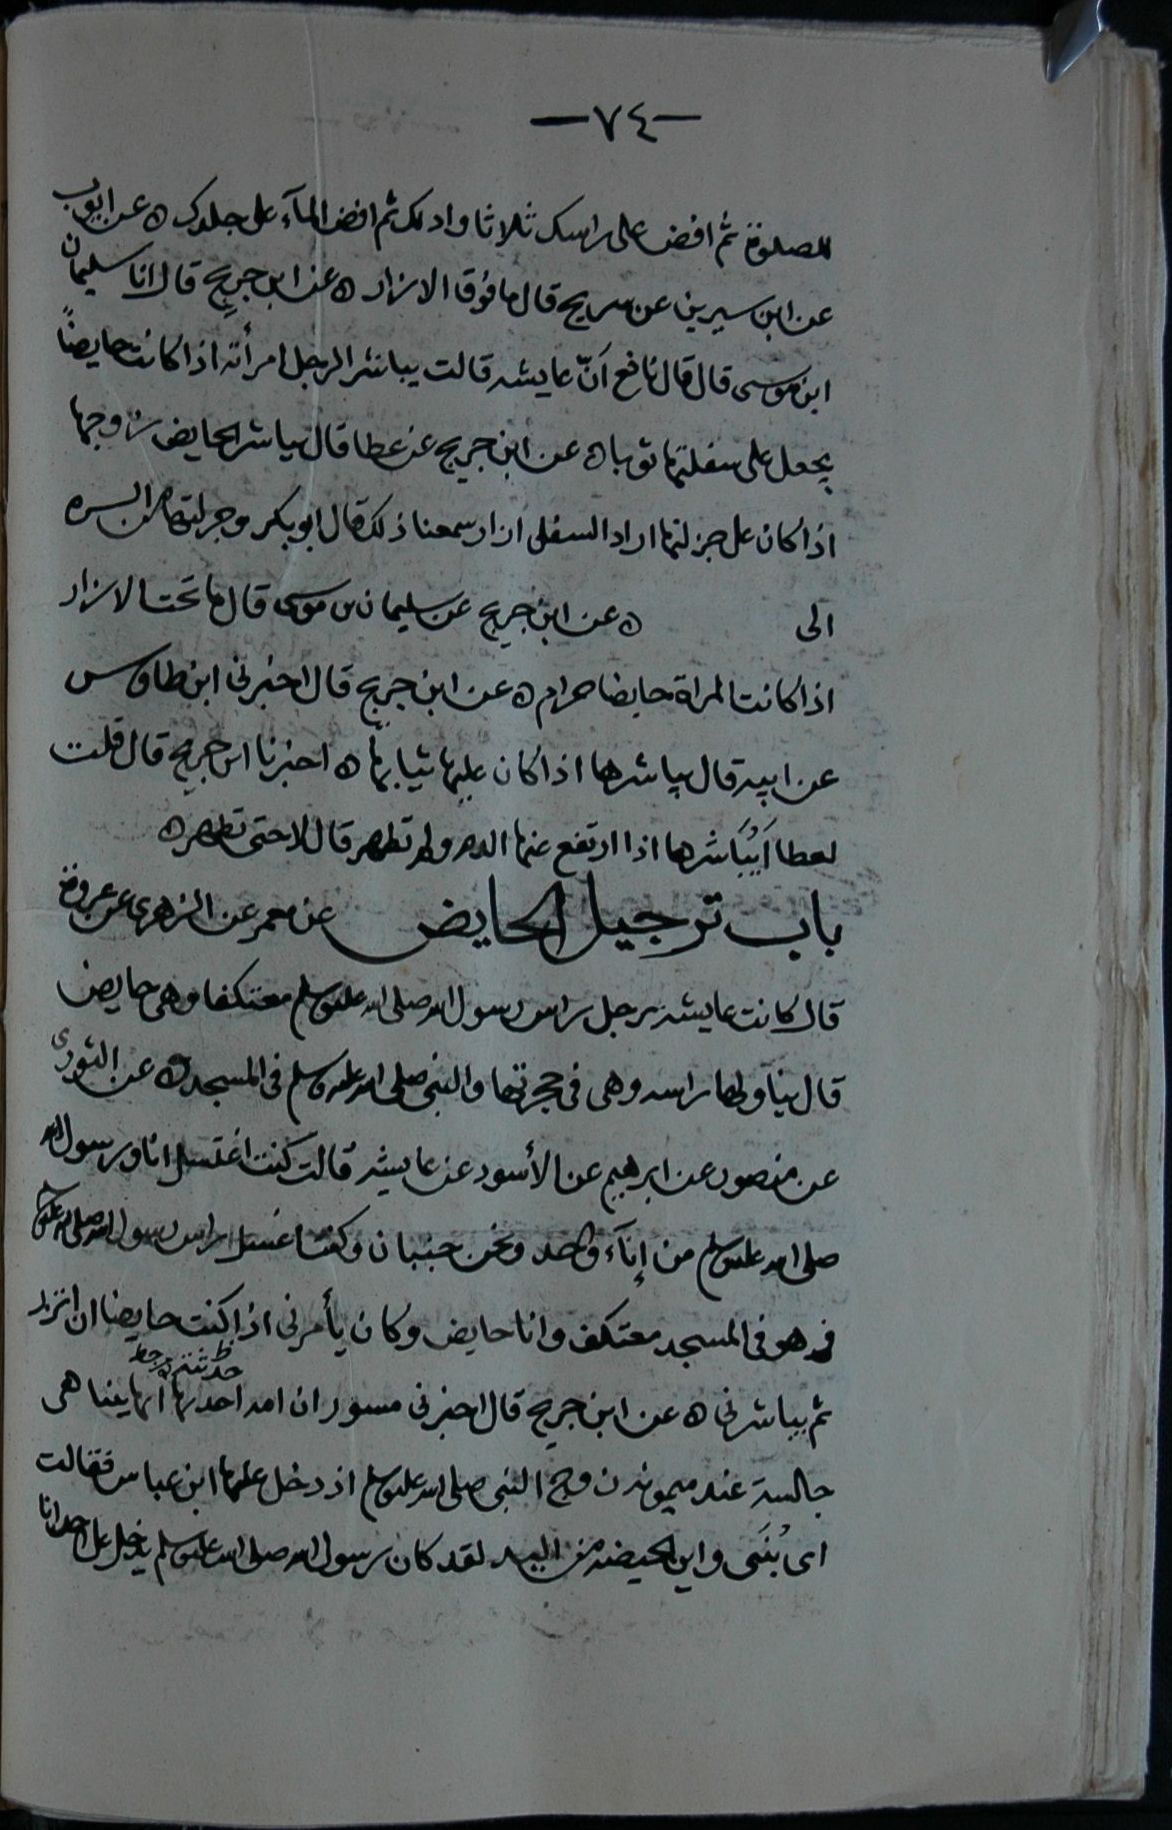 —٧٤—
للصلوة ثم افض على راسك ثلاثا وادلك ثم افض المآء على جلدك ه عن ايوب
عن ابن سيرين عن سريح قال ما فوق الازار ه عن ابن جريج قال انا سليمان
ابن موسى قال قال نافع انّ عايشه قالت يباشر الرجل امرأته اذا كانت حايضاً
يجعل على سفلتها ثوبا ه عن ابن جريج عن عطا قال يباشر الحايض زوجها
اذا كان على جزلتها اراد السفلى ازار سمعنا ذلك قال ابو بكر وجزلتها من السره
الى ه عن ابن جريج عن سليمان بن موسى قال ما تحت الازار
اذا كانت المراة حايضا حرام ه عن ابن جريج قال اخبرنى ابن طاوس
عن ابيه قال يباشرها اذا كان عليها ثيابها ه اخبرنا ابن جريج قال قلت
لعطا اَيُبَاشرها اذا ارتفع عنها الدم ولم تطهر قال لا حتى تطهر ه
باب ترجيل الحايض عن معمر عن الزهرى عن عروة
قال كانت عايشه ترجل راس رسول الله صلى الله عليه وسلم معتكفا وهى حايض
قال يناولها راسه وهى فى حجرتها والنبى صلى الله عليه وسلم فى المسجد ه عن الثورى
عن منصور عن ابرهيم عن الأسود عن عايشه قالت كنت اغتسل انا ورسول الله
صلى الله عليه وسلم من إنآء واحد ونحن جنبان وكنت اغسل راس رسول الله صلى الله عليه وسلم
وهو فى المسجد معتكف وانا حايض وكان يأمرنى اذا كنت حايضا ان اتزر
ثم يباشرنى ه عن ابن جريج قال اخبرنى مسور ان امه احدثها انها بينا هى
حدثته
جالسة عند ميمونه زوج النبى صلى الله عليه وسلم اذ دخل عليها ابن عباس فقالت
اى بُنَى واين الحيضه من اليد لقد كان رسول الله صلى الله عليه وسلم يدخل على احدانا